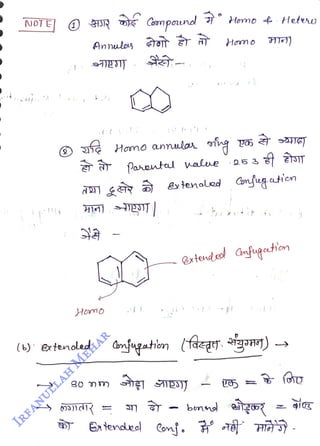 NOTE ① अगर कोई Compound में Homo & Hetero
Annular दोनो हो तो Homo माना
जाएगा जैसे -
② यदि Homo annular रींग एक से ज्यादा
हो तो Parental value 253 ही होगा
तथा दूसरे को extended Conjugation
माना जाएगा|
जैसे -
Extended Conjugation
Homo
(b) Extended Conjugation (विस्तृत संयुग्मन) →
→ 30 nm जोड़ा जाएगा - एक = के लिए
→ लगातार = या दो - bond छोड़कर = बॉण्ड
को Extended Conj. में नहीं मानेंगे.
IRFANULLAH MEHAR